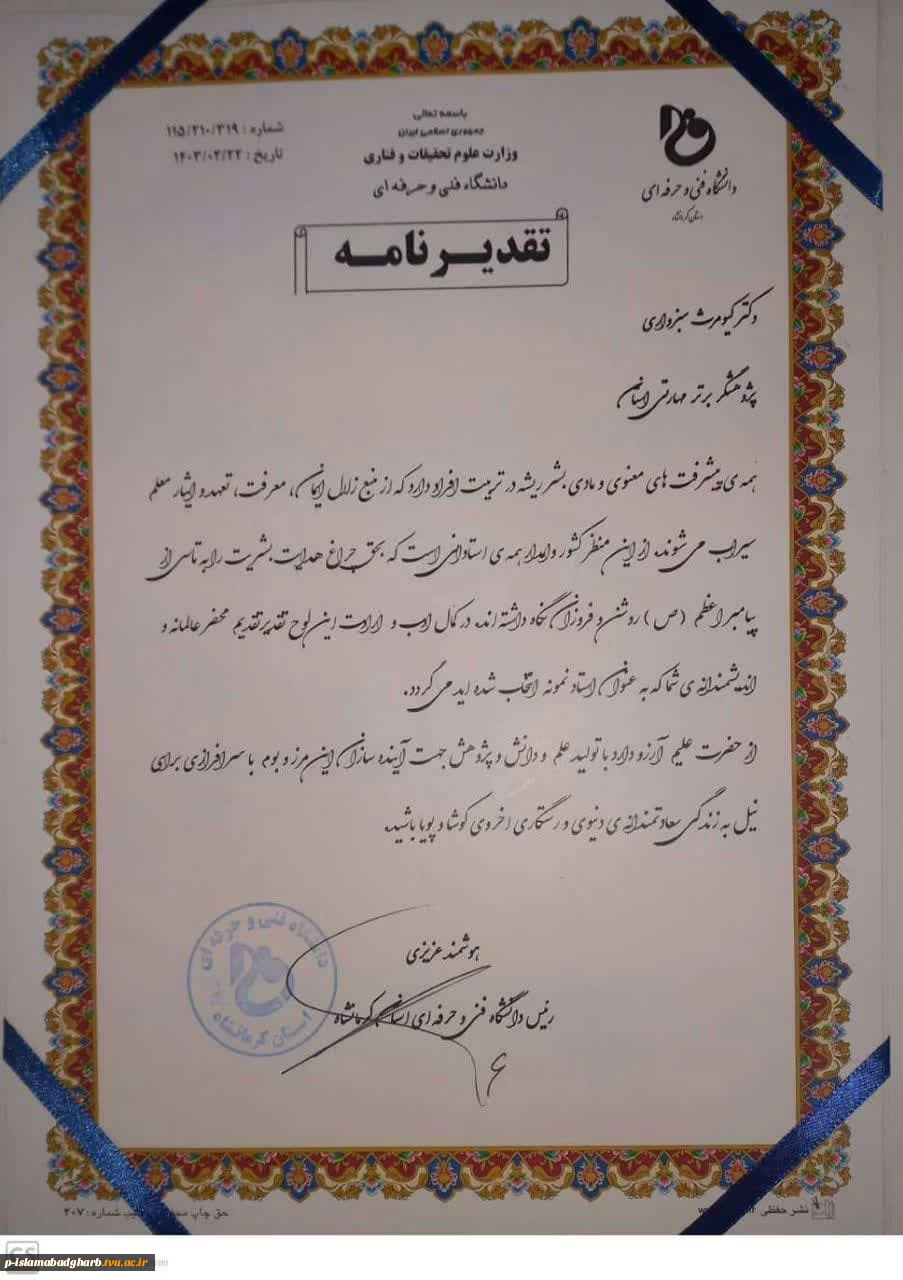 باسمه تعالی
جمهوری اسلامی ایران
وزارت علوم تحقیقات و فناری
دانشگاه فنی و حرفه ای
شماره : ۱۱۵/۲۱۰/۳۱۹
تاریخ : ۱۴۰۳/۰۲/۲۲
دانشگاه فنی و حرفه ای
استان کرمانشاه
تقدیر نامه
دکتر کیومرث سبزواری
پژوهشگر برتر مهارتی استان
همه ی پیشرفت های معنوی و مادی بشر ریشه در تربیت افراد دارد که از منبع زلال ایمان، معرفت، تعهد و ایثار معلم
سیراب می شوند. از این منظر کشور وامدار همه ی استادانی است که بحق چراغ هدایت بشریت را به تاسی از
پیامبر اعظم (ص) روشن و فروزان نگاه داشته اند. در کمال ادب و ارادت این لوح تقدیر تقدیم محضر عالمانه و
اندیشمندانه ی شما که به عنوان استاد نمونه انتخاب شده اید می گردد.
از حضرت علیم آرزو دارد با تولید علم و دانش و پژوهش جهت آینده سازان این مرز و بوم با سرافرازی برای
نیل به زندگی سعادتمندانه ی دنیوی و رستگاری اخروی کوشا و پویا باشید.
هوشمند عزیزی
رئیس دانشگاه فنی و حرفه ای استان کرمانشاه
دانشگاه فنی و حرفه ای
استان کرمانشاه
نشر حفظی
حق چاپ
شماره: ۴۰۷
p-islamabadgharb.tvu.ac.ir